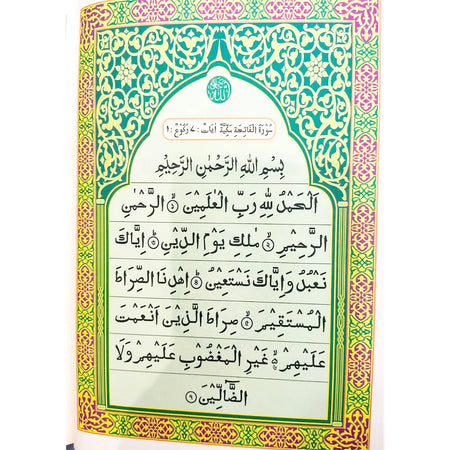 سُوْرَةُ الْفَاتِحَةِ مَكِّيَّةٌ اٰيَاتُ : ٧ رُكُوْعُ : ١
بِسْمِ اللّٰهِ الرَّحْمٰنِ الرَّحِيْمِ
اَلْحَمْدُ لِلّٰهِ رَبِّ الْعٰلَمِيْنَ ۙ﴿١﴾ الرَّحْمٰنِ
الرَّحِيْمِ ۙ﴿٢﴾ مٰلِكِ يَوْمِ الدِّيْنِ ؕ﴿٣﴾ اِيَّاكَ
نَعْبُدُ وَاِيَّاكَ نَسْتَعِيْنُ ؕ﴿٤﴾ اِهْدِنَا الصِّرَاطَ
الْمُسْتَقِيْمَ ۙ﴿٥﴾ صِرَاطَ الَّذِيْنَ اَنْعَمْتَ
عَلَيْهِمْ ۙ۬ غَيْرِ الْمَغْضُوْبِ عَلَيْهِمْ وَلَا
الضَّآلِّيْنَ